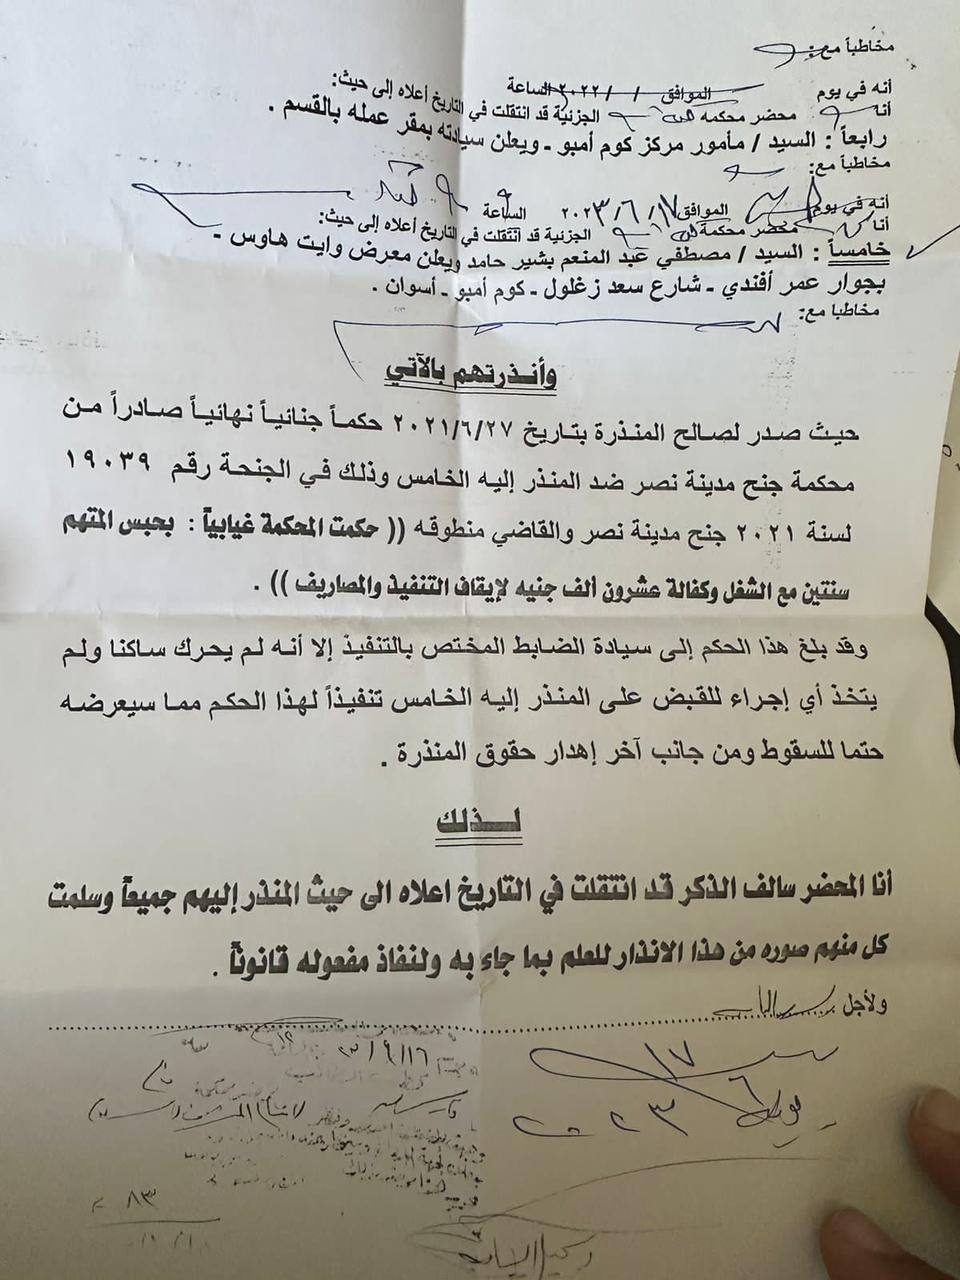 مخاطباً مع:
أنه في يوم الموافق / / ٢٠٢٢ الساعة
أنا محضر محكمة الجزئية قد انتقلت في التاريخ أعلاه إلى حيث:
رابعاً : السيد / مأمور مركز كوم أمبو ـ ويعلن سيادته بمقر عمله بالقسم .
مخاطباً مع:
أنه في يوم الموافق ١٧/٦/٢٠٢٣ الساعة
أنا محضر محكمة الجزئية قد انتقلت في التاريخ أعلاه إلى حيث:
خامساً : السيد / مصطفي عبد المنعم بشير حامد ويعلن معرض وايت هاوس ـ
بجوار عمر أفندي ـ شارع سعد زغلول ـ كوم أمبو ـ أسوان .
مخاطبا مع:
وأنذرتهم بالآتي
حيث صدر لصالح المنذرة بتاريخ ٢٠٢١/٦/٢٧ حكماً جنائياً نهائياً صادراً من
محكمة جنح مدينة نصر ضد المنذر إليه الخامس وذلك في الجنحة رقم ١٩٠٣٩
لسنة ٢٠٢١ جنح مدينة نصر والقاضي منطوقه (( حكمت المحكمة غيابياً : بحبس المتهم
سنتين مع الشغل وكفالة عشرون ألف جنيه لإيقاف التنفيذ والمصاريف )) .
وقد بلغ هذا الحكم إلى سيادة الضابط المختص بالتنفيذ إلا أنه لم يحرك ساكنا ولم
يتخذ أي إجراء للقبض على المنذر إليه الخامس تنفيذاً لهذا الحكم مما سيعرضه
حتما للسقوط ومن جانب آخر إهدار حقوق المنذرة .
لـــذلك
أنا المحضر سالف الذكر قد انتقلت في التاريخ اعلاه الى حيث المنذر إليهم جميعاً وسلمت
كل منهم صوره من هذا الانذار للعلم بما جاء به ولنفاذ مفعوله قانوناً .
ولأجل
١٧
٦
٢٠٢٣